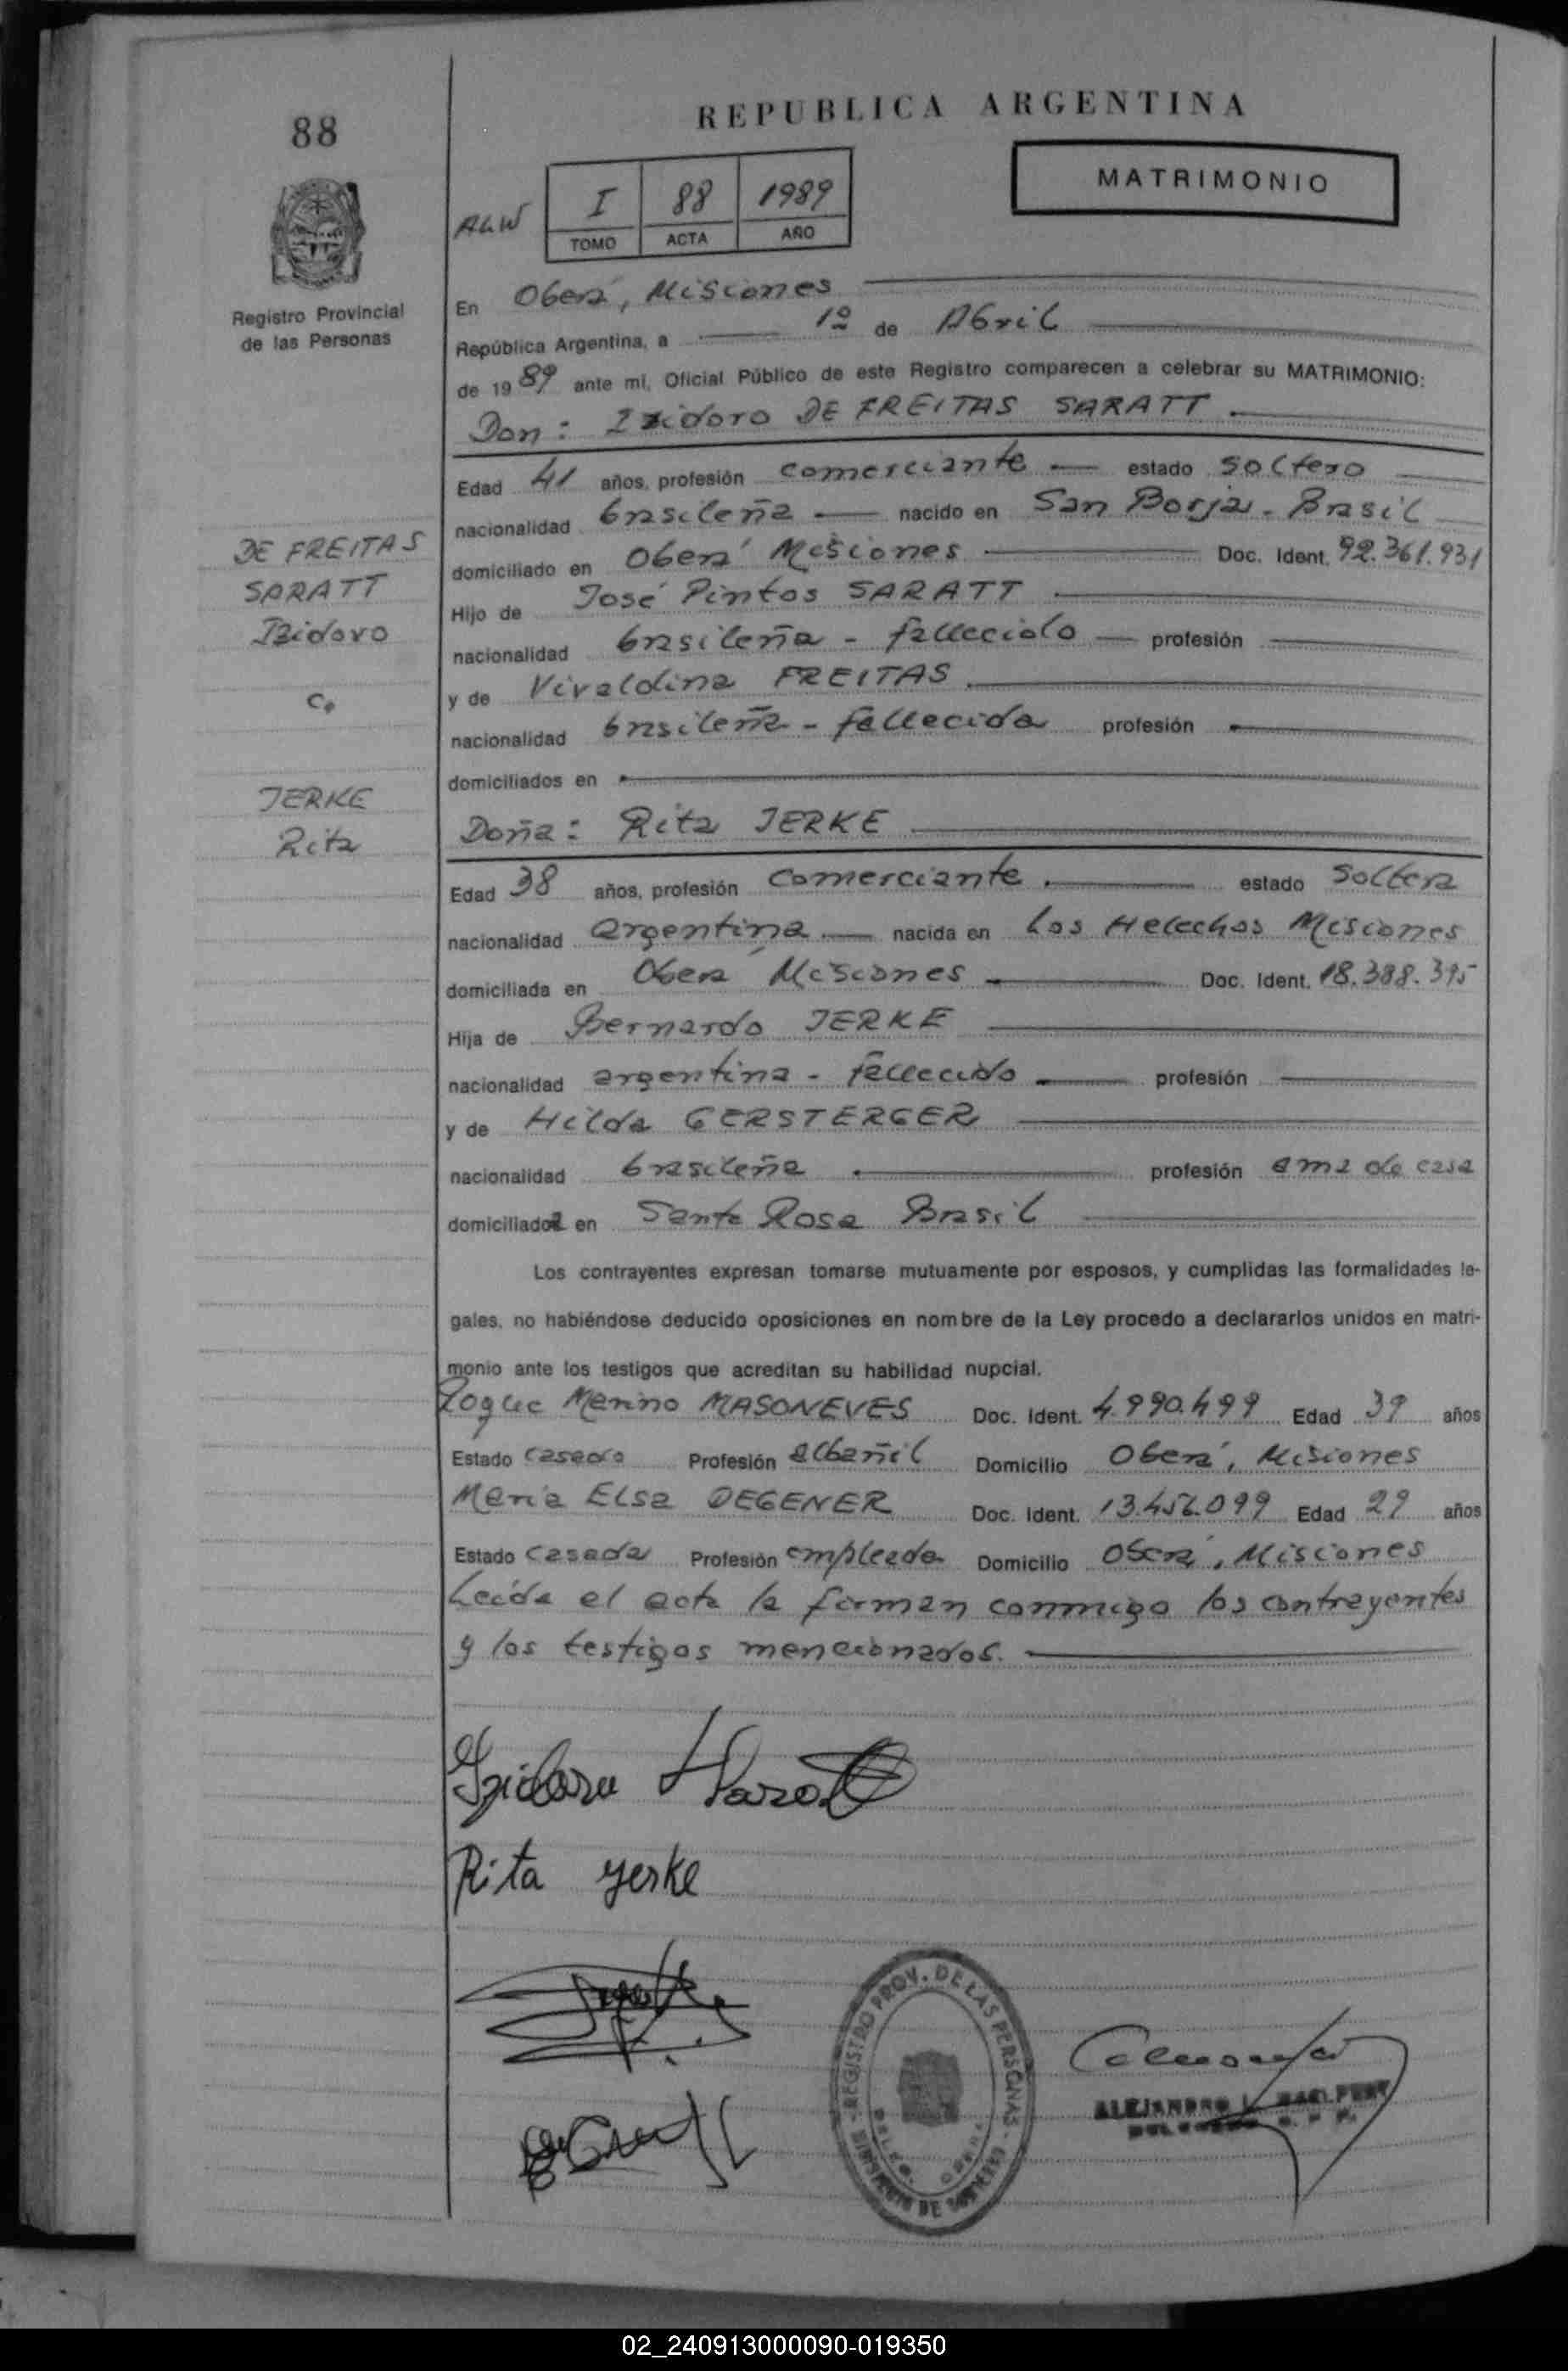 88
REPUBLICA ARGENTINA
MATRIMONIO
I 88 1989
TOMO ACTA AÑO
Registro Provincial
de las Personas
En Oberá, Misiones
República Argentina, a 1º de Abril
de 1989 ante mí, Oficial Público de este Registro comparecen a celebrar su MATRIMONIO:
Don: Izidoro DE FREITAS SARATT
Edad 41 años, profesión comerciante estado soltero
nacionalidad brasileña nacido en San Borja - Brasil
domiciliado en Oberá Misiones Doc. Ident. 92.361.931
Hijo de José Pintos SARATT
nacionalidad brasileña - fallecido profesión
y de Vivaldina FREITAS
nacionalidad brasileña - fallecida profesión
domiciliados en
DE FREITAS
SARATT
Izidoro
JERKE
Rita
Doña: Rita JERKE
Edad 38 años, profesión comerciante estado soltera
nacionalidad argentina nacida en Los Helechos Misiones
domiciliada en Oberá Misiones Doc. Ident. 18.388.395
Hija de Bernardo JERKE
nacionalidad argentina - fallecido profesión
y de Hilda GERSTERGER
nacionalidad brasileña profesión ama de casa
domiciliada en Santa Rosa Brasil
Los contrayentes expresan tomarse mutuamente por esposos, y cumplidas las formalidades le-
gales, no habiéndose deducido oposiciones en nombre de la Ley procedo a declararlos unidos en matri-
monio ante los testigos que acreditan su habilidad nupcial.
Roque Merino MASONEVES Doc. Ident. 4.990.499 Edad 39 años
Estado casado Profesión albañil Domicilio Oberá, Misiones
María Elsa DEGENER Doc. Ident. 13.456.099 Edad 29 años
Estado casada Profesión empleada Domicilio Oberá, Misiones
Leída el acta la firman conmigo los contrayentes
y los testigos mencionados.
Izidoro Saratt
Rita Jerke
REGISTRO PROV. DE LAS PERSONAS
ALEJANDRO
02_240913000090-019350